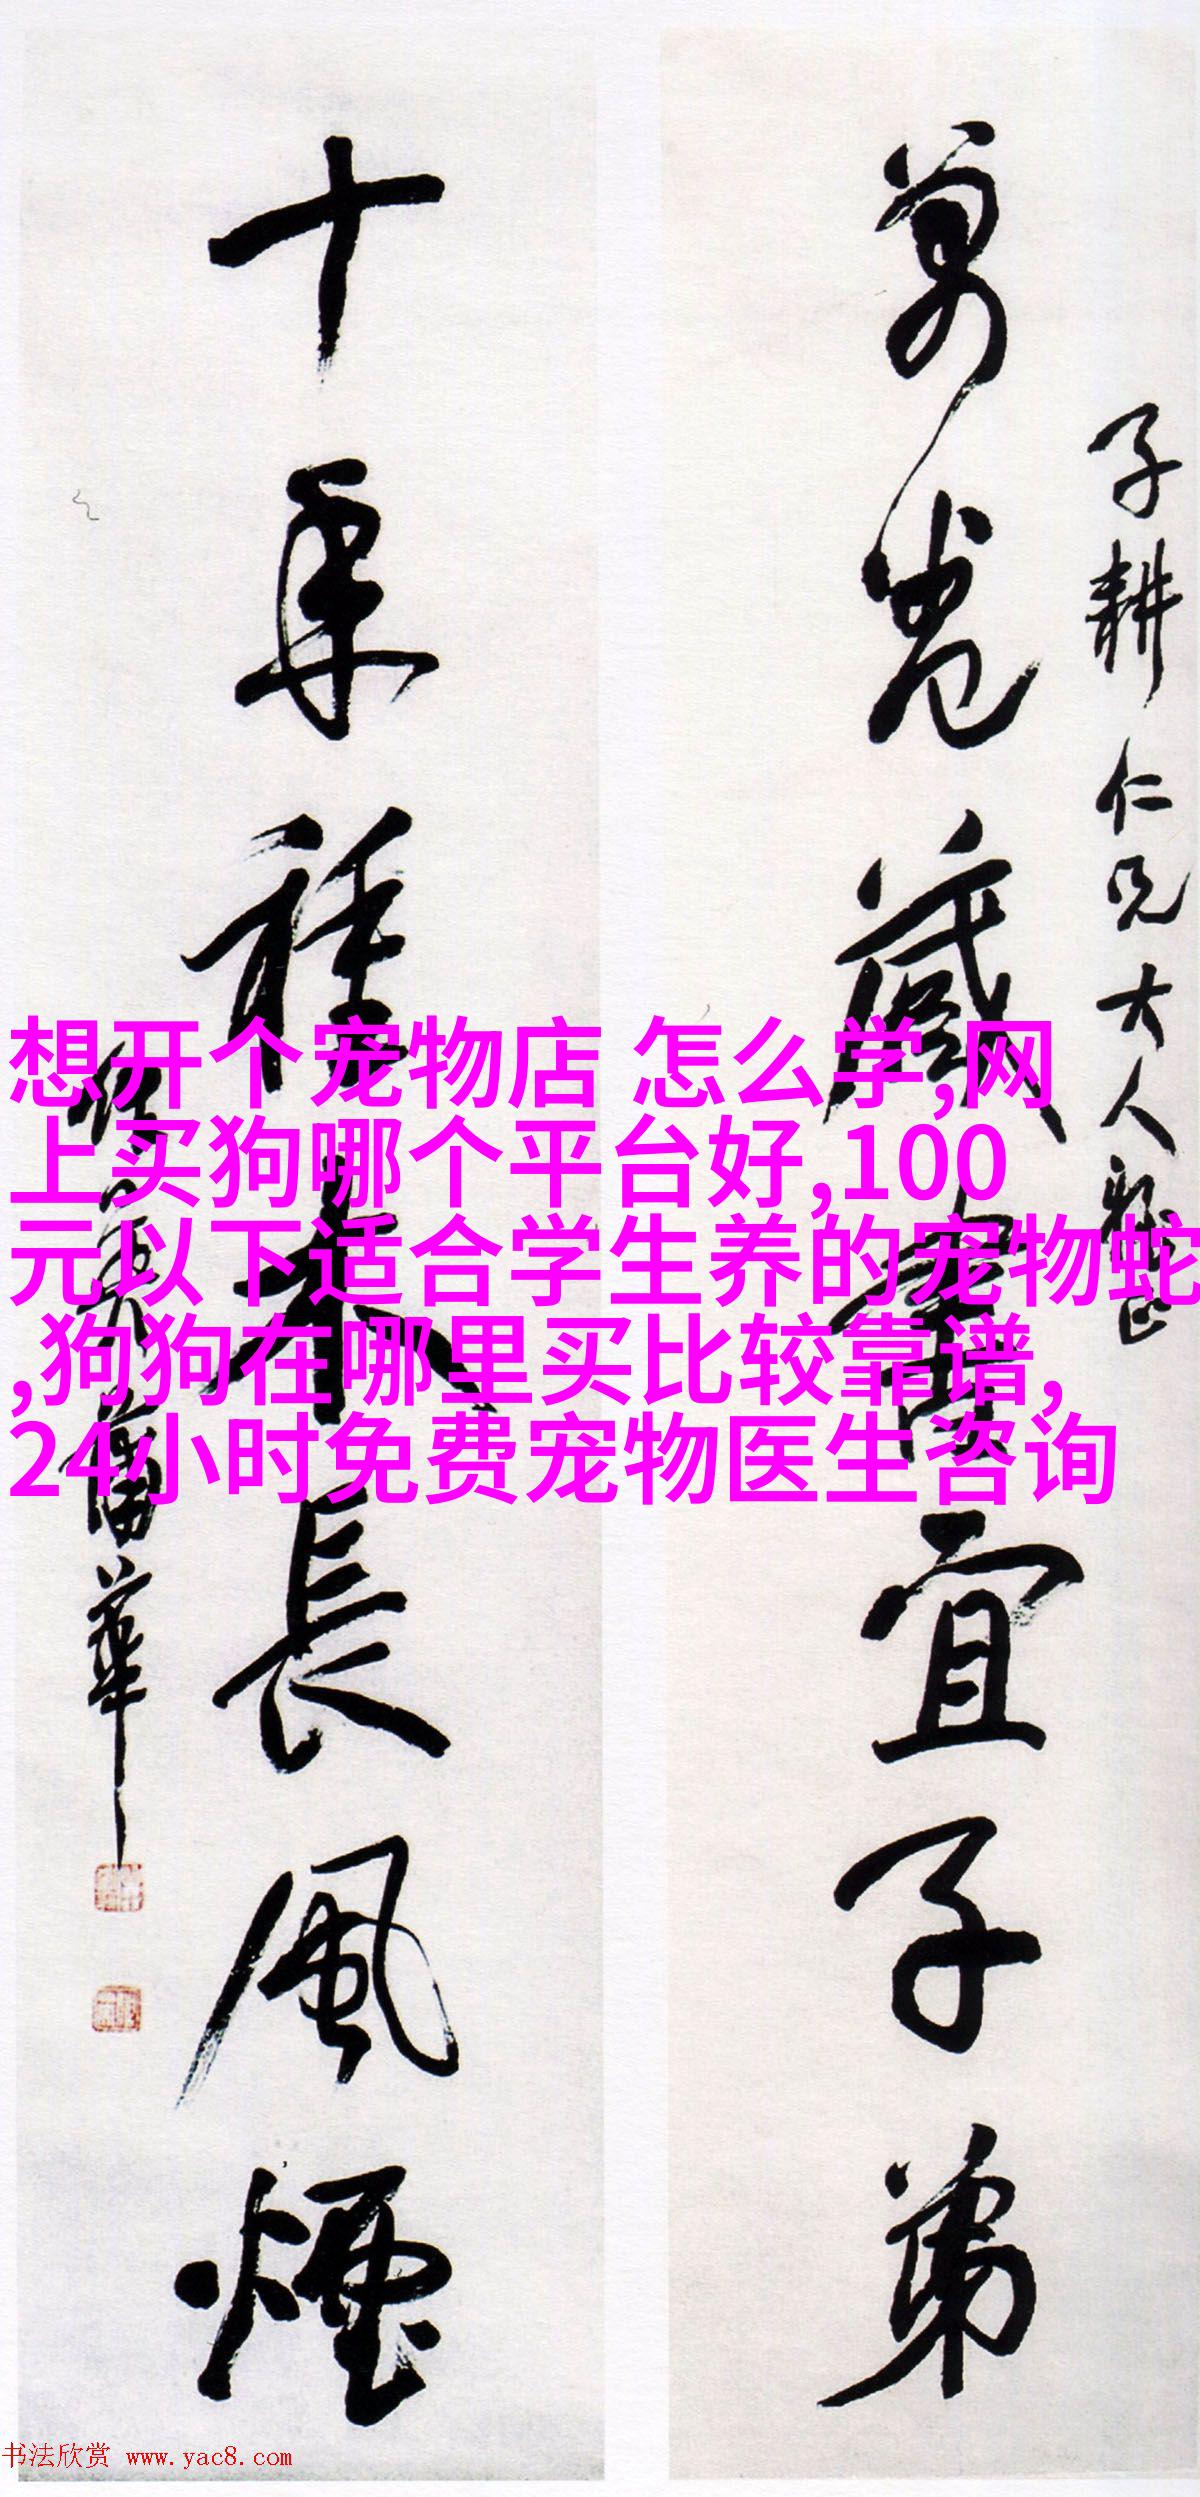 子耕仁兄大人雅正
萬卷藏書宜子弟
十年種木長風煙
蒲華
想开个宠物店 怎么学,网
上买狗哪个平台好,100
元以下适合学生养的宠物蛇
,狗狗在哪里买比较靠谱,
24小时免费宠物医生咨询
书法欣赏 www.yac8.com